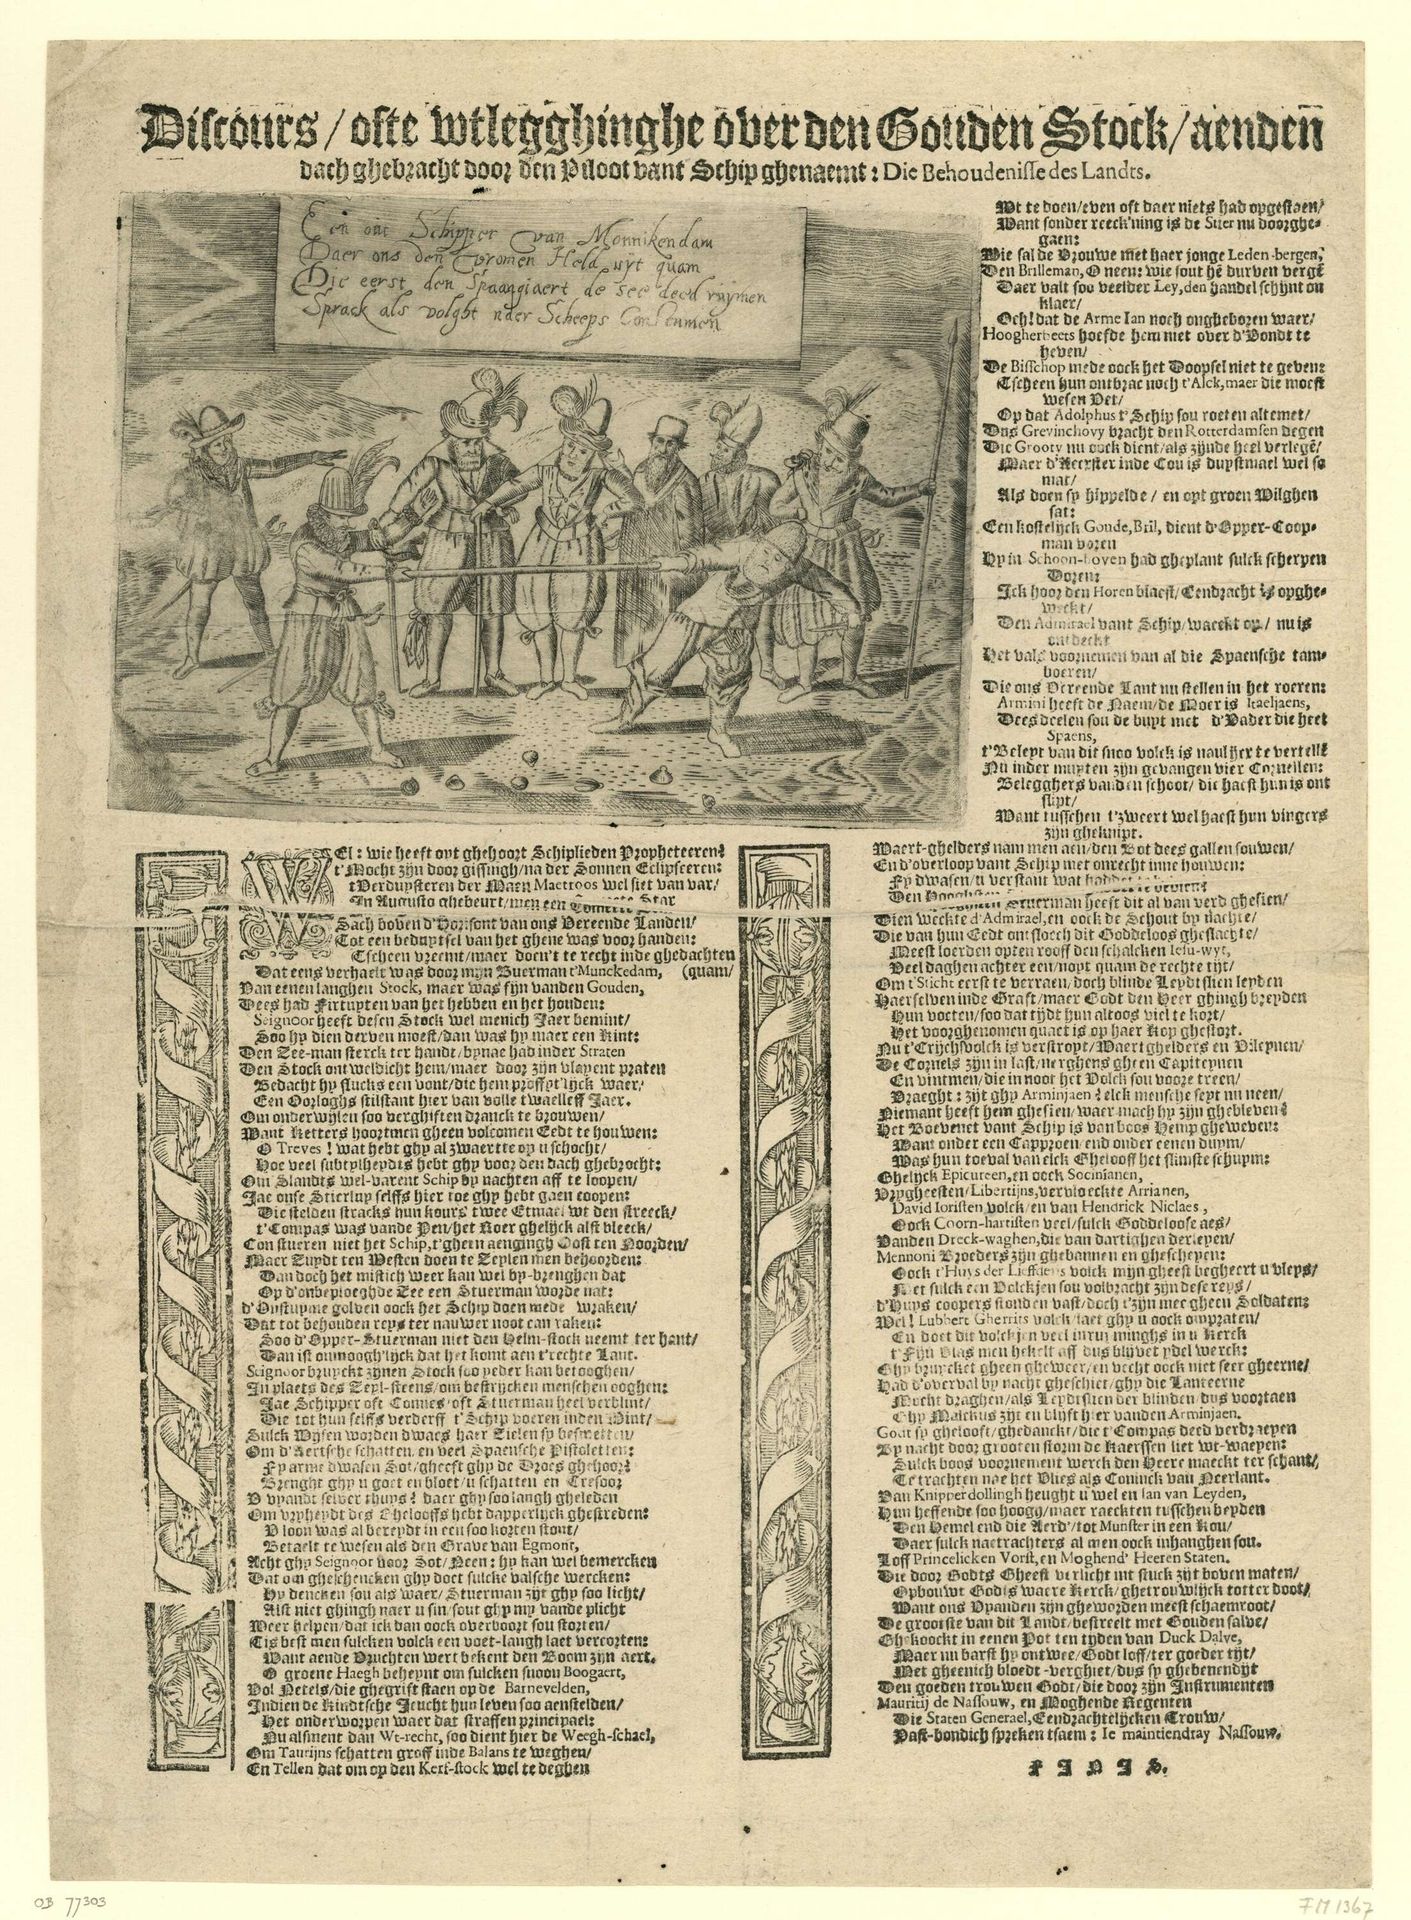 Discours / ofte wtlegghinghe over den Gouden Stock / aenden
dach ghebracht door den Piloot vant Schip ghenaemt: Die Behoudenisse des Landts.
Een out Schipper van Monnikendam
Daer ons den vromen Held uyt quam
Die eerst den Spaangiaert de see deed ruymen
Sprack als volght naer Scheeps Costeumen
WEl: wie heeft oyt ghehoort Schiplieden Propheteeren?
t'Mocht zijn door gissingh / na der Sonnen Eclipseeren:
tVerduysteren der Maen Maetroos wel siet van var /
In Augusto ghebeurt / men een Comeete Star
Sach boven d'Horisont van ons Vereende Landen /
Tot een beduytsel van het ghene was voor handen:
Tscheen vreemt / maer doen't te recht inde ghedachten
Dat eens verhaelt was door mijn Buerman t'Munckedam, (quam /
Van eenen langhen Stock, maer was sijn vanden Gouden,
Dees had Firtuyten van het hebben en het houden:
Seignoor heeft desen Stock wel menich Jaer bemint /
Soo hy dien derven moest / dan was hy maer een Kint:
Den Zee-man sterck ter handt / bynae had inder Straten
Den Stock ontweldicht hem / maer door zijn vleyent praten
Bedacht hy flucks een vont / die hem proffytlijck waer /
Een Oorloghs stilstant hier van volle twaelleff Jaer.
Om onderwylen soo verghiften dranck te brouwen /
Want Ketters hoortmen gheen volcomen Eedt te houwen:
O Treves! wat hebt ghy al zwaertte op u schocht /
Hoe veel subtylheydts hebt ghy voor den dach ghebrocht:
Om Slandts wel-varent Schip by nachten aff te loopen /
Jae onse Stierluy selffs hier toe ghy hebt gaen coopen:
Die stelden stracks hun kours twee Etmael wt den streeck /
t'Compas was vande Pen / het Roer ghelijck alst bleeck /
Con stueren niet het Schip, t'gheen aengingh Oost ten Noorden /
Maer Zuydt ten Westen doen te Zeylen men behoorden:
Dan doch het mistich weer kan wel by-brenghen dat
Op d'onbeploeghde Zee een Stuerman worde nat:
d'Onstuyme golven oock het Schip doen mede wraken /
Dat tot behouden reys ter nauwer noot can raken:
Soo d'Opper-Stuerman niet den Helm-stock neemt ter hant /
Dan ist onmoogh'lijck dat het komt aen t'rechte Lant.
Seignoor bruyckt zijnen Stock soo yeder kan betooghen /
In plaets des Zeyl-steens / om bestrijcken menschen ooghen:
Jae Schipper oft Comies / oft Stuerman heel verblint /
Die tot hun selffs verderff t'Schip voeren inden Wint /
Sulck Wysen worden dwaes haer Zielen sy besmetten /
Om d'Aertsche schatten, en veel Spaensche Pistoletten:
Fy arme dwasen Sot / gheeft ghy de Droes ghehoor?
Brenght ghy u goet en bloet / u schatten en Tresoor
U vyandt selver thuys? daer ghy soo langh gheleden
Om vryheydt des Ghelooffs hebt dapperlijck ghestreden:
U loon was al bereydt in een soo korten stont /
Betaelt te wesen als den Grave van Egmont,
Acht ghy Seignoor voor Sot / Neen: hy kan wel bemercken
Dat om gheschencken ghy doet sulcke valsche wercken:
Hy dencken sou als waer / Stuerman zijt ghy soo licht /
Alst niet ghingh naer u sin / sout ghy my vande plicht
Weer helpen / dat ick dan oock overboort sou storten /
Tis best men sulcken volck een voet-langh laet vercorten:
Want aende Vruchten wert bekent den Boom zijn aert.
O groene Haegh beheynt om sulcken snoon Boogaert,
Vol Netels / die ghegrift staen op de Barnevelden,
Indien de Kindtsche Jeucht hun leven soo aenstelden /
Het onderworpen waer dat straffen principael:
Nu alsment dan Wt-recht, soo dient hier de Weegh-schael,
Om Taurijns schatten groff inde Balans te weghen /
En Tellen dat om op den Kerf-stock wel te deghen
Wt te doen / even oft daer niets had opgestaen /
Want sonder reeck'ning is de Stier nu doorghe-
gaen:
Wie sal de Vrouwe met haer jonge Leden-bergen,
Den Brilleman, O neen: wie sout hē durven vergē
Daer valt soo veelder Ley, den handel schijnt on
klaer /
Och! dat de Arme Ian noch ongheboren waer /
Hoogherbeets hoefde hem niet over d'Vondt te
heven /
De Bisschop mede oock het Doopsel niet te geven:
Tscheen hun ontbrac noch t'Alck, maer die moest
wesen Vet /
Op dat Adolphus t'Schip sou roeten altemet /
Dus Grevinchovy bracht den Rotterdamsen degen
Die Grooty nu oock dient / als zijnde heel verlegē /
Maer d'Aecxster inde Cou is duystmael wel so
mat /
Als doen sy hippelde / en opt groen Wilghen
sat:
Een kostelijck Goude, Bril, dient d'Opper-Coop-
man voren
Hy in Schoon-hoven had gheplant sulck scherpen
Doren:
Ick hoor den Horen blaest / Eendracht is opghe-
weckt /
Den Admirael vant Schip / waeckt op / nu is
ontdeckt
Het vals voornemen van al die Spaensche tam-
boeren /
Die ons Vereende Lant nu stellen in het roeren:
Armini heeft de Naem / de Moer is Itaeljaens,
Dees deelen sou de buyt met d'Vader die heet
Spaens,
t'Beleyt van dit snoo volck is naulijcr te vertellē
Nu inder muyten zijn gevangen vier Cornellen:
Belegghers vanden schoot / die haest hun is ont
slipt /
Want tusschen t'zweert wel haest hun vingers
zijn gheknipt.
Waert-ghelders nam men aen / den Bot dees gallen souwen /
En d'overloop vant Schip met onrecht inne houwen:
Fy dwasen / u verstant wat
Den Stuerman heeft dit al van verd ghesien /
Dien weckte d'Admirael, en oock de Schout by nachte /
Die van hun Eedt ontsloech dit Goddeloos gheslachte /
Meest loerden opten rooff den schalcken Iesu-wyt,
Veel daghen achter een / noyt quam de rechte tijt /
Om t'Sticht eerst te verraen / doch blinde Leydtslien leyden
Haer selven inde Graft / maer Godt den Heer ghingh breyden
Hun voeten / soo dat tijdt hun altoos viel te kort /
Het voorghenomen quaet is op haer Kop ghestort.
Nu t'Crijchsvolck is verstroyt / Waertghelders en Vileynen /
De Cornels zijn in last / nerghens gheen Capiteynen
En vintmen / die in noot het Volck sou voore treen /
Vraeght: zijt ghy Arminjaen? elck mensche seyt nu neen /
Niemant heeft hem ghesien / waer mach hy zijn ghebleven?
Het Boevenet vant Schip is van boos Hemp gheweven:
Want onder een Capproen / end onder eenen duym /
Was hun toeval van elck Ghelooff het slimste schuym:
Ghelijck Epicureen, en oock Socinianen,
Vrygheesten / Libertijns, vervloeckte Arrianen,
David Ioristen volck / en van Hendrick Niclaes,
Oock Coorn-hartisten veel / sulck Goddeloose aes /
Vanden Dreck-waghen, die van dartighen derleyen /
Mennoni Broeders zijn ghebannen en ghescheyen:
Oock t'Huys der Lieffdens volck mijn gheest begheert u vleys /
Met sulck een Volckjen sou volbracht zijn dese reys /
d'Huys coopers stonden vast / doch t'zijn mee gheen Soldaten:
Wel! Lubbert Gherrits volck / laet ghy u oock ompraten /
En doet dit volckjen veel inruyminghs in u Kerck
t'Fijn Vlas men hekelt aff dus blijvet ydel werck:
Ghy bruycket gheen gheweer / en vecht oock niet seer gheerne /
Had d'overval by nacht gheschiet / ghy die Lanteerne
Mocht draghen / als Leydtslien der blinden dus voortaen
Ghy Malckus zijt en blijft hier vanden Arminjaen.
Godt sy ghelooft / ghedanckt / die t'Compas deed verdraeyen
By nacht door grooten storm de Kaerssen liet wt-waeyen:
Sulck boos voornement werck den Heere maeckt ter schant /
Te trachten nae het Vlies als Coninck van Neerlant.
Van Knipperdollingh heught u wel en Ian van Leyden,
Hun heffende soo hoogh / maer raeckten tusschen beyden
Den Hemel end die Aerd' / tot Munster in een Kou /
Daer sulck naetrachters al men oock inhanghen sou.
Loff Princelicken Vorst, en Moghend' Heeren Staten.
Die door Godts Gheest verlicht int stuck zijt boven maten /
Opbouwt Godts waere Kerck / ghetrouwlijck totter doot /
Want ons Vyanden zijn gheworden meest schaemroot /
De grootste van dit Landt / bestreelt met Gouden salve /
Ghekoockt in eenen Pot ten tyden van Duck Dalve,
Maer nu barst hy ont wee / Godt loff / ter goeder tijt /
Met gheenich bloedt-verghiet / dus sy ghebenendijt
Den goeden trouwen Godt / die door zijn Instrumenten
Mauritij de Nassouw, en Moghende Regenten
Die Staten Generael, Eendrachtelijcken Trouw /
Vast-bondich spreken tsaem: Ie maintiendray Nassouw.
FINIS.
OB 77303
FM 1367